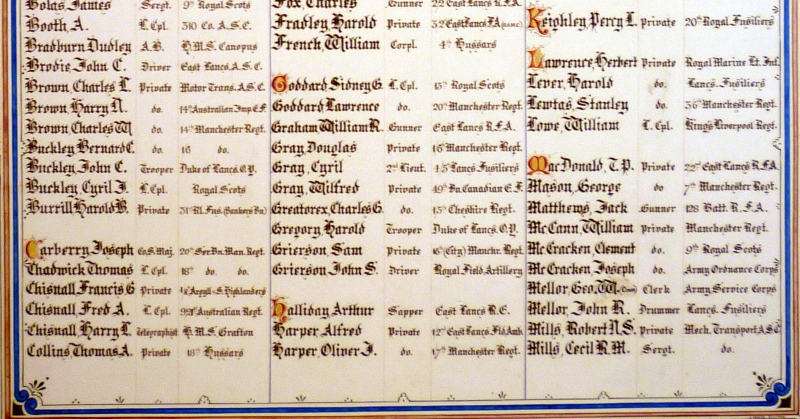 Bolas, James Sergt. 9th Royal Scots
Booth, A. L. Cpl. 310 Co. A.S.C.
Bradburn Dudley A.B. H.M.S. Canopus
Brodie, John C. Driver East Lancs. A.S.C.
Brown, Charles L. Private Motor Trans. A.S.C.
Brown, Harry N. do. 14th Australian Imp. E.F.
Brown, Charles W. do. 14th Manchester Regt.
Buckley, Bernard C. do. 16 do.
Buckley, John C. Trooper Duke of Lancs. O.Y.
Buckley, Cyril J. L. Cpl. Royal Scots
Burrill Harold B. Private 31st Rl. Fus. (Bankers Bn)
Carberry, Joseph Co. S. Maj. 20th Ser. Bn. Man. Regt.
Chadwick Thomas L. Cpl. 18th do. do.
Chisnall, Francis G Private Argyll & S. Highlanders
Chisnall, Fred A. L. Cpl. Australian Regt.
Chisnall, Harry L. Telegraphist H.M.S. Grafton
Collins, Thomas A. Private 18th Hussars
Fox, Charles Gunner 22nd East Lancs. R.F.A.
Fradley Harold Private East Lancs. F.A.
French, William Corpl. 4th Hussars
Goddard Sidney G. L. Cpl. 15th Royal Scots
Goddard Lawrence do. 20th Manchester Regt.
Graham William R. Gunner East Lancs R.F.A.
Gray, Douglas Private 16th Manchester Regt.
Gray, Cyril 2nd Lieut. Lancs Fusiliers
Gray, Wilfred Private 49th Bn. Canadian E.F.
Greatorex, Charles G. do. 13th Cheshire Regt.
Gregory, Harold Trooper Duke of Lancs. O.Y.
Grierson, Sam Private 16th (City) Manchr. Regt.
Grierson, John S. Driver Royal Field Artillery
Halliday, Arthur Sapper East Lancs R.E.
Harper, Alfred Private 12th East Lancs. Fld Amb
Harper, Oliver J. do. 17th Manchester Regt.
Keighley, Percy L. Private 20th Royal Fusiliers
Lawrence, Herbert Private Royal Marine Lt. Inf.
Lever, Harold do. Lancs. Fusiliers
Lewtas, Stanley do. Manchester Regt.
Lowe, William L. Cpl. King's Liverpool Regt.
MacDonald, T.P. Private 22nd East Lancs R.F.A.
Mason, George do 7th Manchester Regt.
Matthews, Jack Gunner 128 Batt. R.F.A.
McCann, William Private Manchester Regt.
McCracken, Clement do. 9th Royal Scots
McCracken, Joseph do. Army Ordnance Corps
Mellor, Geo. W. Clerk Army Service Corps
Mellor, John R. Drummer Lancs. Fusiliers
Mills, Robert N.S. Private Mech. Transport A.S.C
Mills, Cecil R.M. Sergt. do.